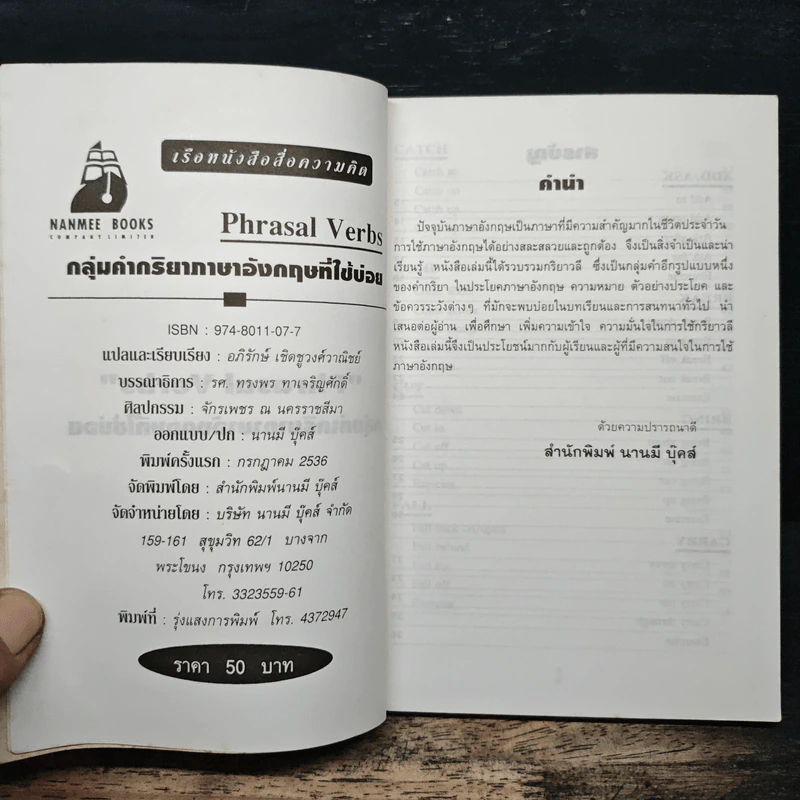 เรือหนังสือสื่อความคิด
NANMEE BOOKS
COMPANY LIMITED
Phrasal Verbs
กลุ่มคำกริยาภาษาอังกฤษที่ใช้บ่อย
ISBN : 974-8011-07-7
แปลและเรียบเรียง : อภิรักษ์ เชิดชูวงศ์วาณิชย์
บรรณาธิการ : รศ. ทรงพร ทาเจริญศักดิ์
ศิลปกรรม : จักรเพชร ณ นครราชสีมา
ออกแบบ/ปก : นานมี บุ๊คส์
พิมพ์ครั้งแรก : กรกฎาคม 2536
จัดพิมพ์โดย : สำนักพิมพ์นานมี บุ๊คส์
จัดจำหน่ายโดย : บริษัท นานมี บุ๊คส์ จำกัด
159-161 สุขุมวิท 62/1 บางจาก
พระโขนง กรุงเทพฯ 10250
โทร. 3323559-61
พิมพ์ที่ : รุ่งแสงการพิมพ์ โทร. 4372947
ราคา 50 บาท
คำนำ
ปัจจุบันภาษาอังกฤษเป็นภาษาที่มีความสำคัญมากในชีวิตประจำวัน
การใช้ภาษาอังกฤษได้อย่างสละสลวยและถูกต้อง จึงเป็นสิ่งจำเป็นและน่า
เรียนรู้ หนังสือเล่มนี้ได้รวบรวมกริยาวลี ซึ่งเป็นกลุ่มคำอีกรูปแบบหนึ่ง
ของคำกริยา ในประโยคภาษาอังกฤษ ความหมาย ตัวอย่างประโยค และ
ข้อควรระวังต่างๆ ที่มักจะพบบ่อยในบทเรียนและการสนทนาทั่วไป นำ
เสนอต่อผู้อ่าน เพื่อศึกษา เพิ่มความเข้าใจ ความมั่นใจในการใช้กริยาวลี
หนังสือเล่มนี้จึงเป็นประโยชน์มากกับผู้เรียนและผู้ที่มีความสนใจในการใช้
ภาษาอังกฤษ
ด้วยความปรารถนาดี
สำนักพิมพ์ นานมี บุ๊คส์